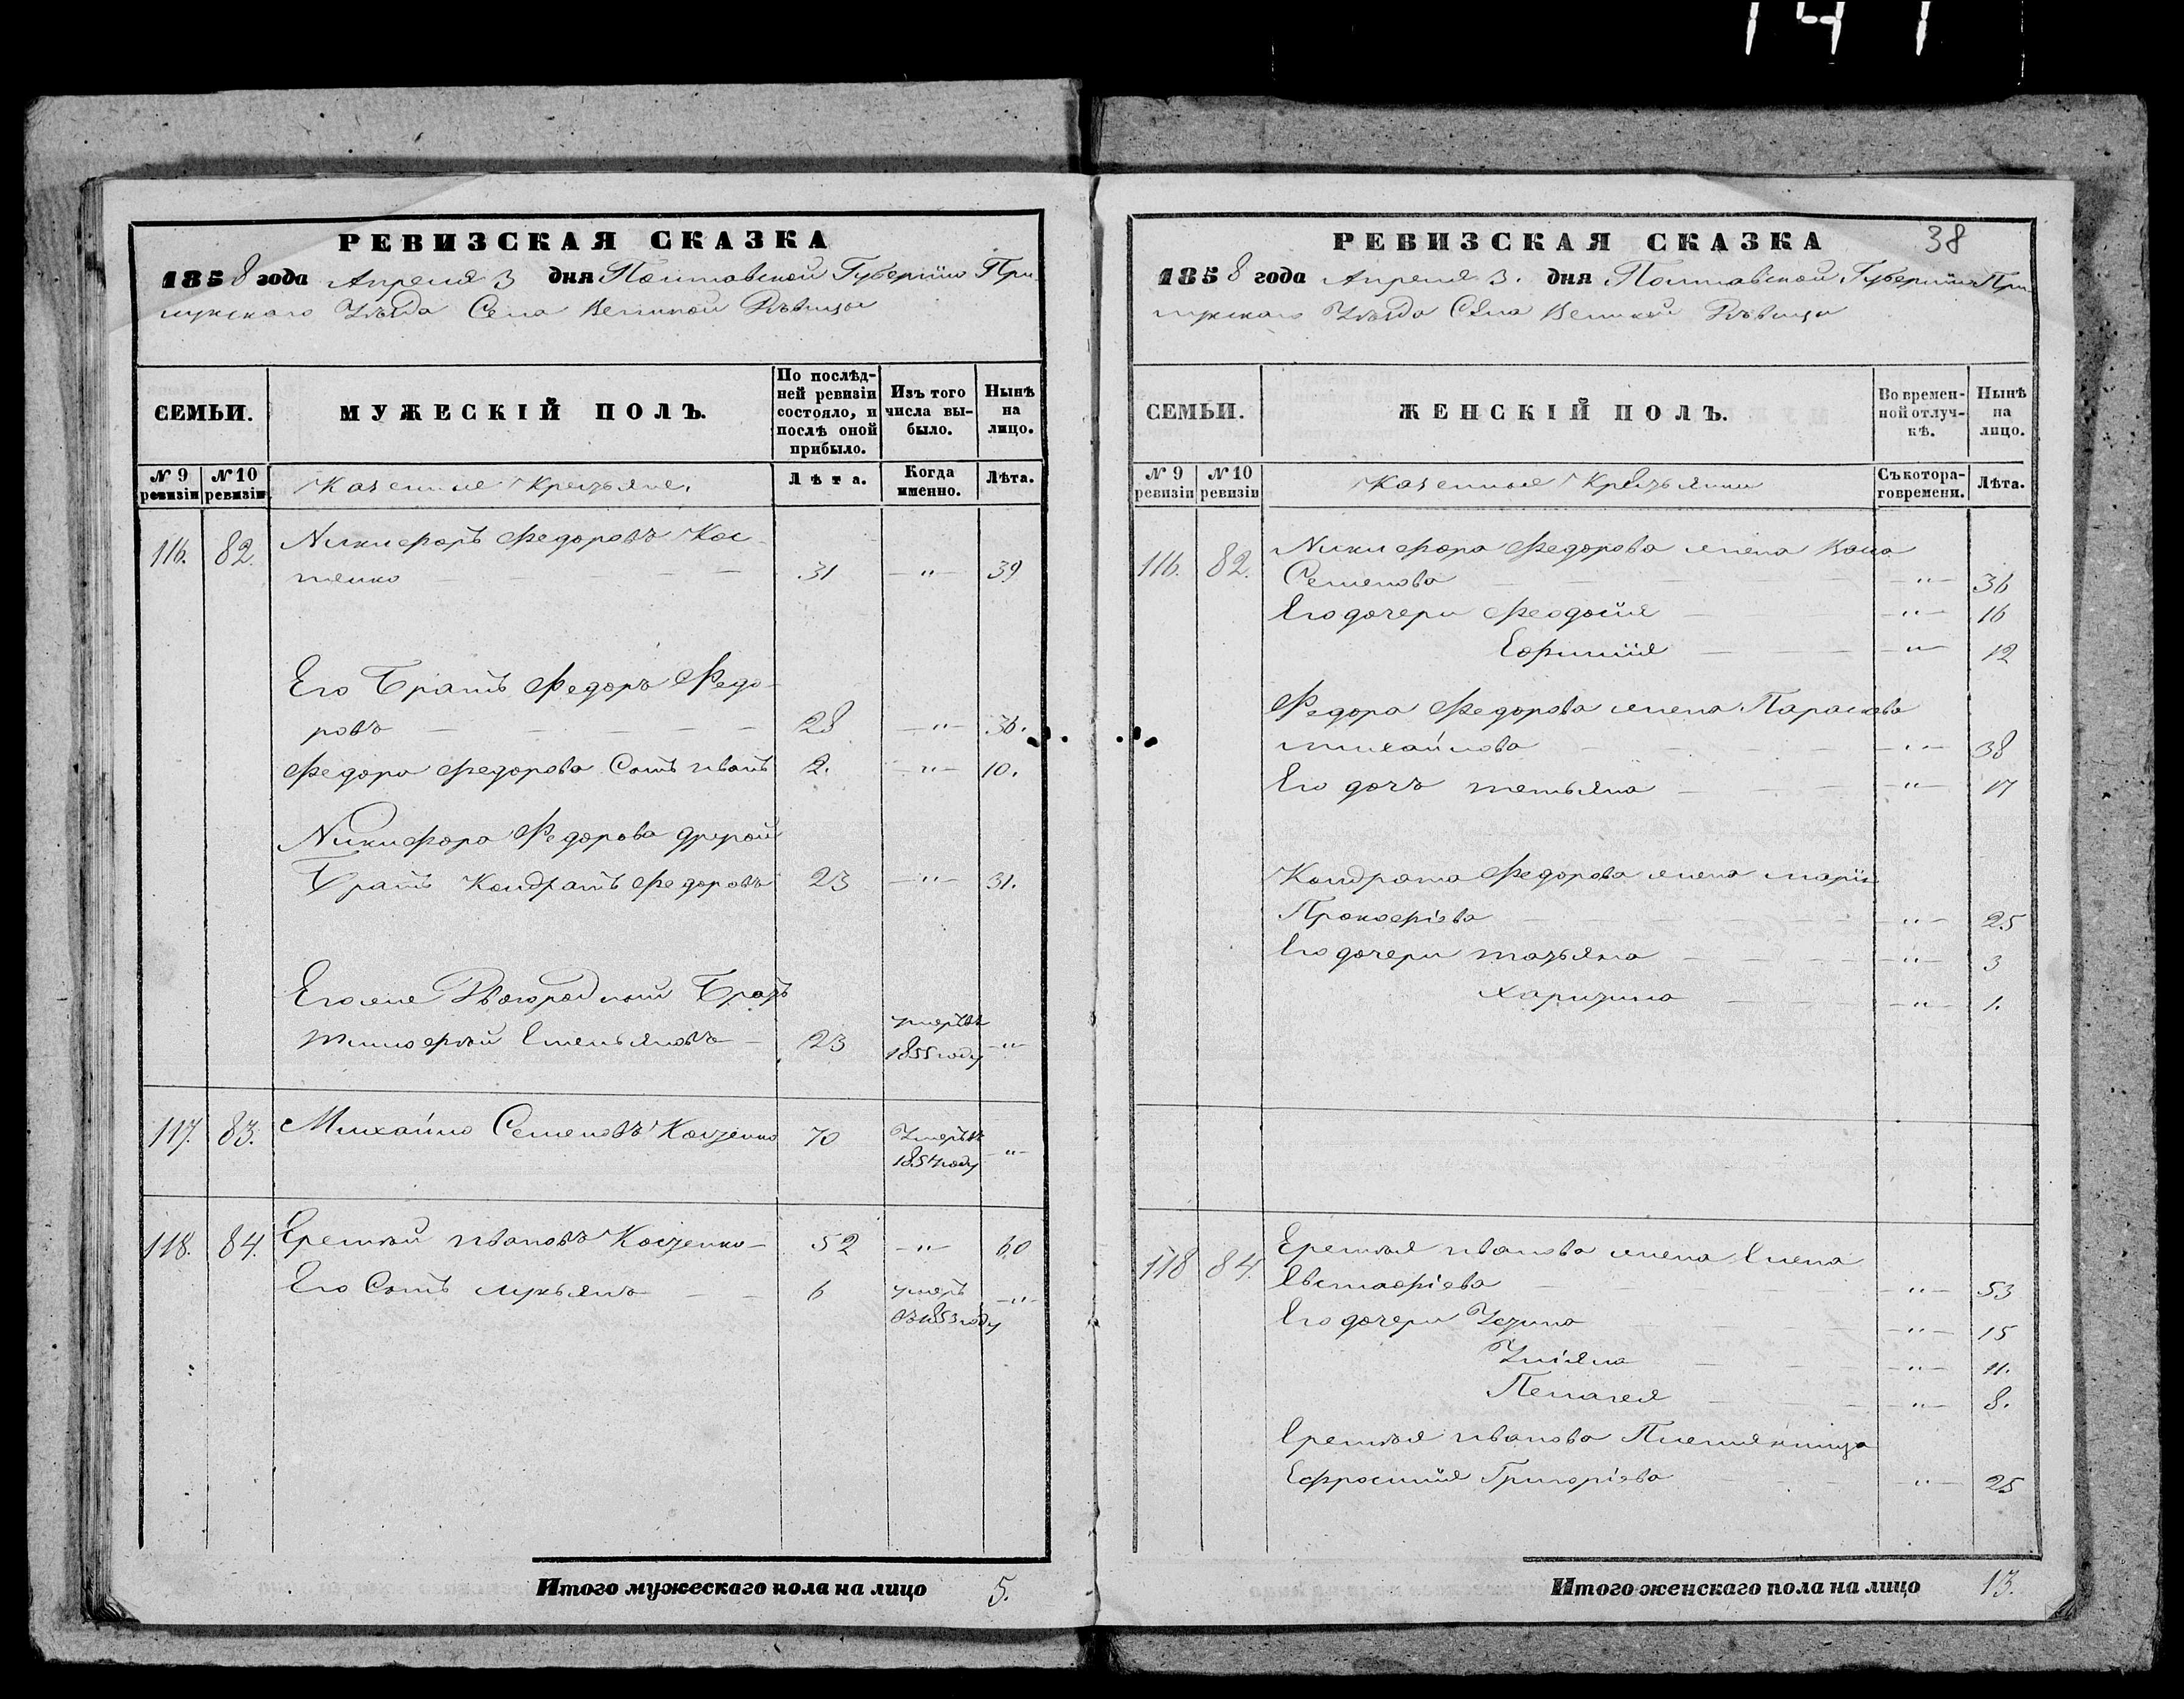 141
РЕВИЗСКАЯ СКАЗКА
1858 года Апреля 3 дня Полтавской Губерніи При-
лукскаго Уѣзда Села Великой Дѣвицы
СЕМЬИ.
МУЖЕСКІЙ ПОЛЪ.
По послѣд-
ней ревизіи
состояло, и
послѣ оной
прибыло.
Изъ того
числа вы-
было.
Нынѣ
на
лицо.
№ 9
ревизіи
№ 10
ревизіи
Казенные Крестьяне.
Лѣта.
Когда
именно.
Лѣта.
116. 82. Никифоръ Федоровъ Кос-
тенко 31 — " — 39
Его Братъ Федоръ Федо-
ровъ 28 — " — 36.
Федора Федорова Сынъ Иванъ 2. — " — 10.
Никифора Федорова другой
Братъ Кондратъ Федоровъ 23 — " — 31.
Его же Двоюродный Братъ
Тимофѣй Емельяновъ 23 умеръ въ 1855 году — " —
117. 83. Михайло Семеновъ Костенко 70 Умеръ въ 1854 году — " —
118. 84. Еремѣй Ивановъ Костенко 52 — " — 60
Его Сынъ Лукьянъ 6 умеръ въ 1853 году — " —
Итого мужескаго пола на лицо 5.
РЕВИЗСКАЯ СКАЗКА 38
1858 года Апреля 3. дня Полтавской Губерніи При-
лукскаго Уѣзда Села Великой Дѣвицы
СЕМЬИ.
ЖЕНСКІЙ ПОЛЪ.
Во времен-
ной отлуч-
кѣ.
Нынѣ
на
лицо.
№ 9
ревизіи
№ 10
ревизіи
Казенные Крестьянки
Съ котора-
го времени.
Лѣта.
116. 82. Никифора Федорова жена
Семенова — " — 36
Его дочери Феодосія — " — 16
Ефимія — " — 12
Федора Федорова жена Параскева
Михайлова — " — 38
Его дочъ Тетьяна — " — 17
Кондрата Федорова жена Марія
Прокофіева — " — 25
Его дочери Татьяна — " — 3
Харитина — " — 1.
118 84. Еремѣя Иванова жена Елена
Евстафіева — " — 53
Его дочери Устина — " — 15
Уліяна — " — 11.
Пелагея — " — 8.
Еремѣя Иванова Племянница
Ефросинія Григоріева — " — 25
Итого женскаго пола на лицо 13.